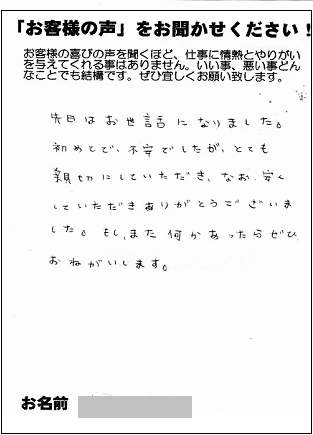 「お客様の声」をお聞かせください!
お客様の喜びの声を聞くほど、仕事に情熱とやりがい
を与えてくれる事はありません。いい事、悪い事どん
なことでも結構です。ぜひ宜しくお願い致します。
先日はお世話になりました。
初めてで、不安でしたが、とても
親切にしていただき、なお、安く
していただきありがとうございま
した。もし、また何かあったらぜひ
おねがいします。
お名前